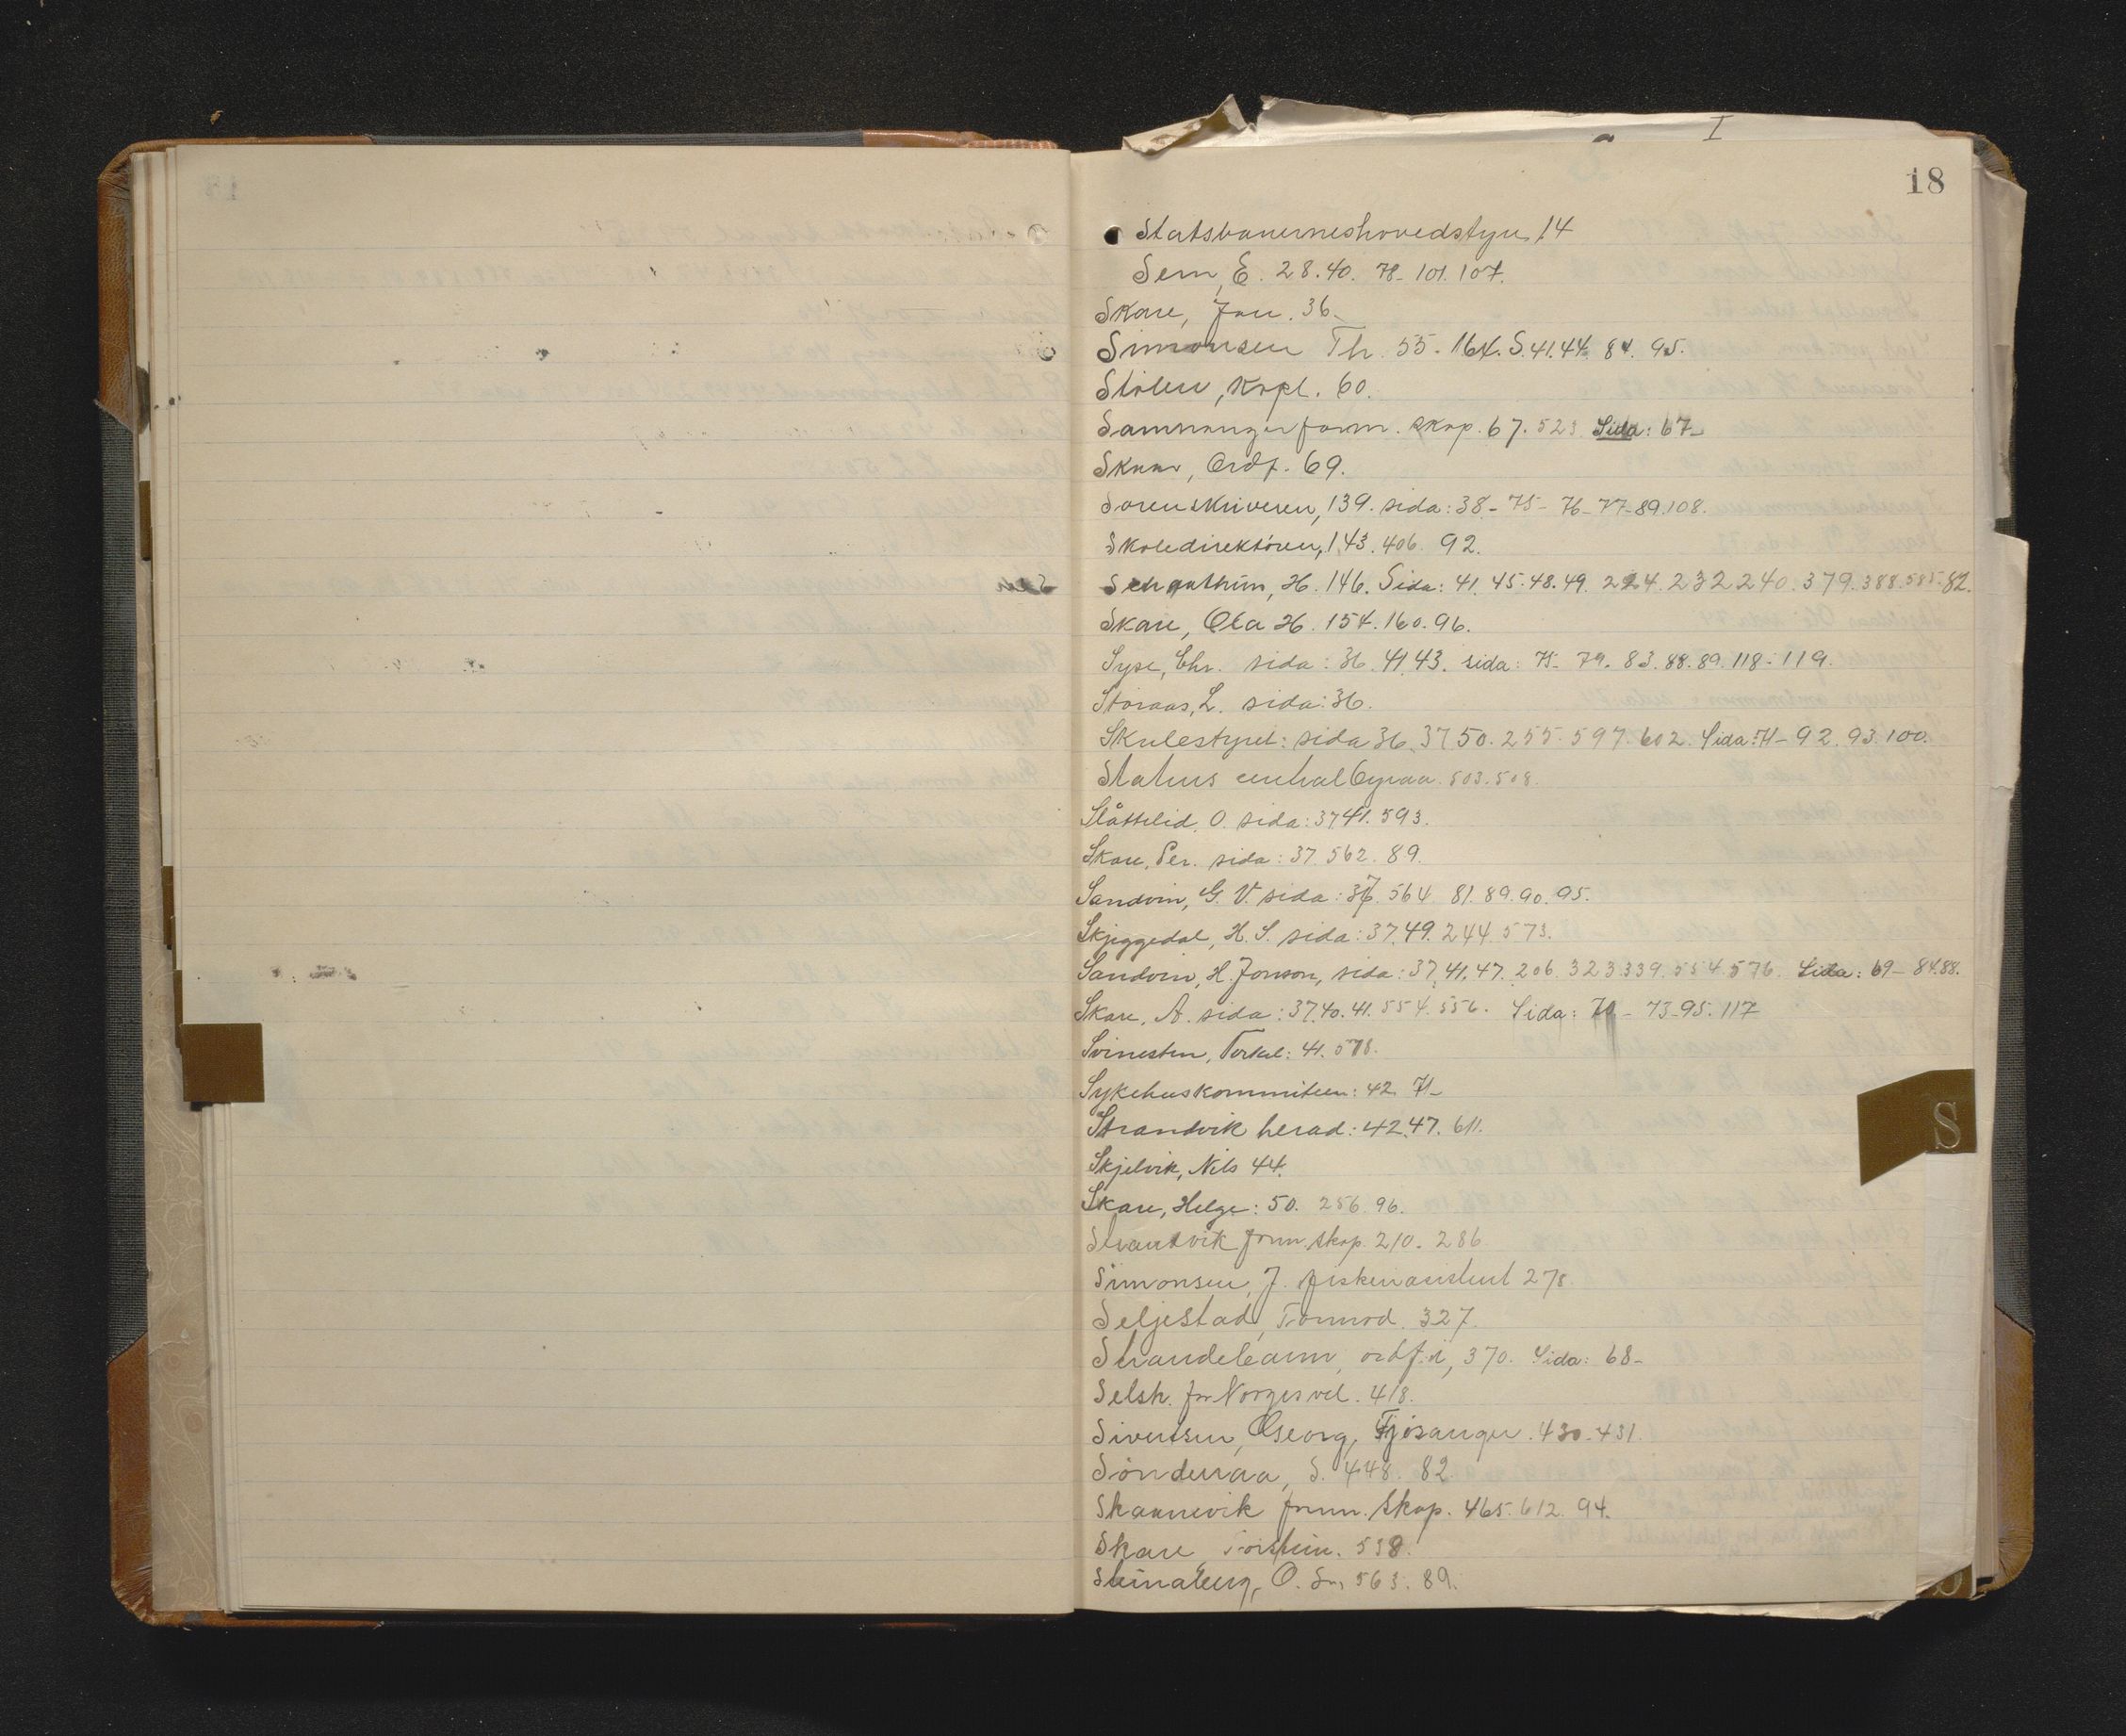 I
18
Statsbanerneshovedstyre, 14
Sem, E. 28.40. 78- 101. 107.
Skare, Jon. 36.
Simonsen Th. 55. 164. S. 41.44. 84. 95.
Stölen, Kapt. 60.
Samnanger form. skap. 67. 523 Sida: 67-
Skaar, Ordf. 69.
Sorenskriveren, 139. sida: 38- 75- 76- 77-89.108.
Skoledirektören, 143. 406. 92.
H. 146. Sida: 41. 45.48.49. 224. 232 240. 379. 388. 585. 82.
Skare, Ola H. 154. 160. 96.
Syse, Chr. sida: 36. 41.43. sida: 75- 79. 83. 88. 89. 118-119.
Storaas, L. sida: 36.
Skulestyret: sida 36. 37 50. 255. 597. 602. Sida: 71- 92. 93. 100.
Statens centralbyraa. 503. 508.
Slåttelid, O. sida: 37 41. 593.
Skare, Per. sida: 37. 562. 89.
Sandvin, G. V. sida: 37. 564 81. 89. 90. 95.
Skjeggedal, H. S. sida: 37. 49. 244. 573.
Sandvin, H. Jonson, sida: 37, 41. 47. 206. 323 339. 554. 576. Sida: 69- 84.88.
Skare, A. sida: 37.40. 41. 554. 556. Sida: 70- 73-95. 117
Svinesten, Torkel: 41. 578.
Sykehuskommiteen: 42. 71-
Strandvik herad: 42.47. 611.
Skjelvik, Nils 44.
Skare, Helge: 50. 256. 96.
Strandvik form. skap. 210. 286
Simonsen, J. fiskeriassistent 278.
Seljestad, Tormod. 327.
Strandebarm, ordf. i, 370. Sida: 68-
Selsk. for Norges vel. 418.
Sivertsen, Georg, Fjösanger. 430-431.
Sönderaa, S. 448. 82
Skaanevik form. skap. 465. 612. 94.
Skare, Torstein. 538.
Steinaberg, O. Sn. 563. 89.
S